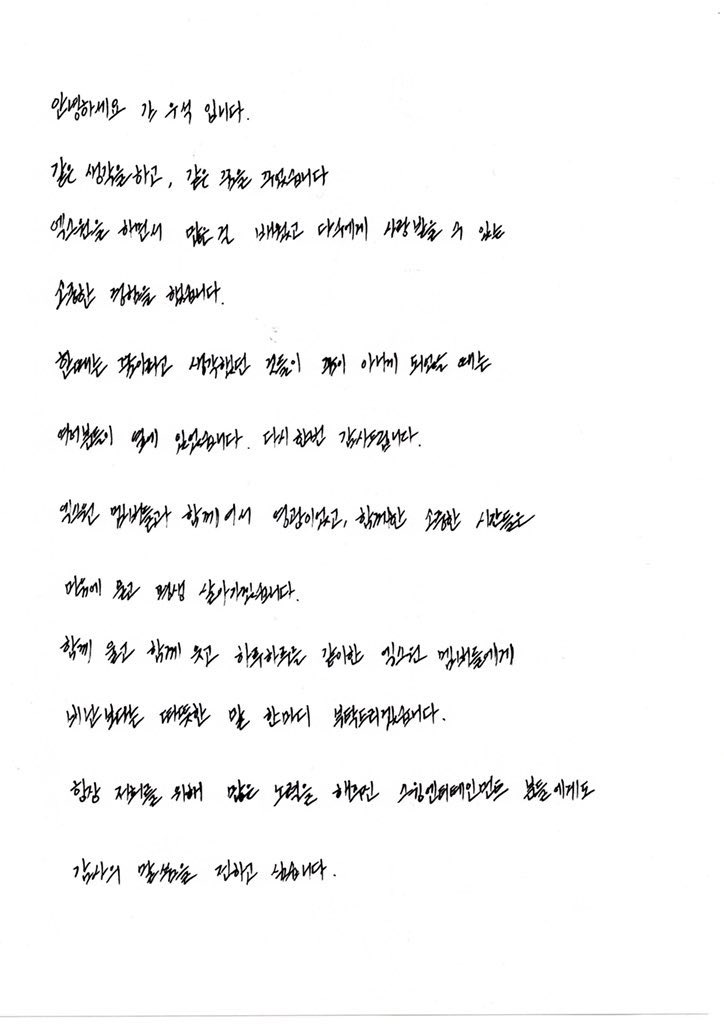 안녕하세요 김 우석 입니다.
같은 생각을 하고, 같은 꿈을 꾸었습니다
엑스원을 하면서 많은 걸 배웠고 다수에게 사랑 받을 수 있는
소중한 경험을 했습니다.
한때는 꿈이라고 생각했던 것들이 꿈이 아니게 되었을 때는
여러분들이 옆에 있었습니다. 다시 한번 감사드립니다.
엑스원 멤버들과 함께여서 영광이었고, 함께한 소중한 시간들은
마음에 묻고 평생 살아가겠습니다.
함께 울고 함께 웃고 하루하루를 같이한 엑스원 멤버들에게
비난보다는 따뜻한 말 한마디 부탁드리겠습니다.
항상 저희를 위해 많은 노력을 해주신 스윙엔터테인먼트 분들에게도
감사의 말씀을 전하고 싶습니다.